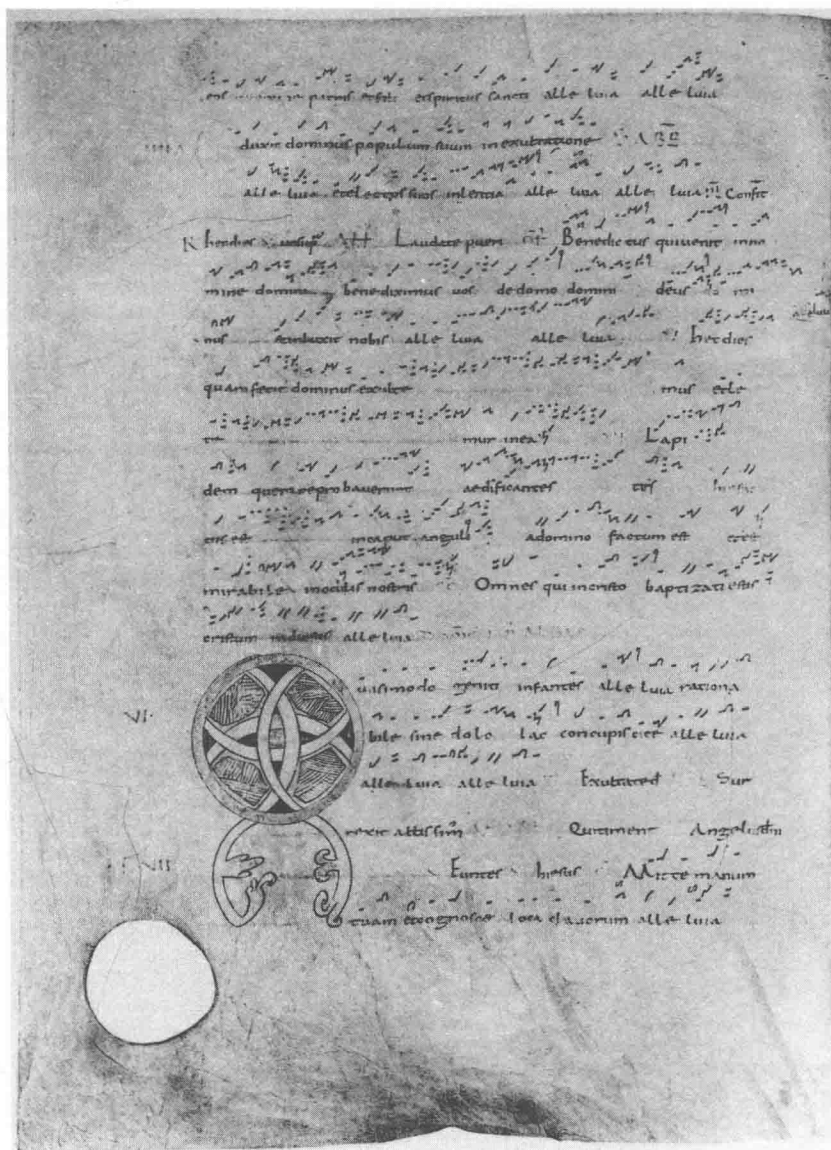 patris et filii et spiritus sancti alle luia alle luia
duxit dominus populum suum in exultatione
alle luia et electos suos in leticia alle luia alle luia Confit
R hec dies Laudate pueri Benedictus qui venit inno
mine domini benediximus uos de domo domini deus
nus et inluxit nobis alle luia alle luia hec dies
quam fecit dominus exulte mus et le
te mur in ea Lapi
dem quem reprobauerunt aedificantes
tus est in caput anguli a domino factum est et est
mirabile in oculis nostris Omnes qui in cristo baptizati estis
cristum induistis alle luia
VI uasi modo geniti infantes alle luia rationa
bile sine dolo lac concupiscite alle luia
alle luia alle luia Exultate d Sur
rexit altissim Qui timent Angelus dni
VII Euntes hiesus Mitte manum
tuam et cognosce loca clauorum alle luia